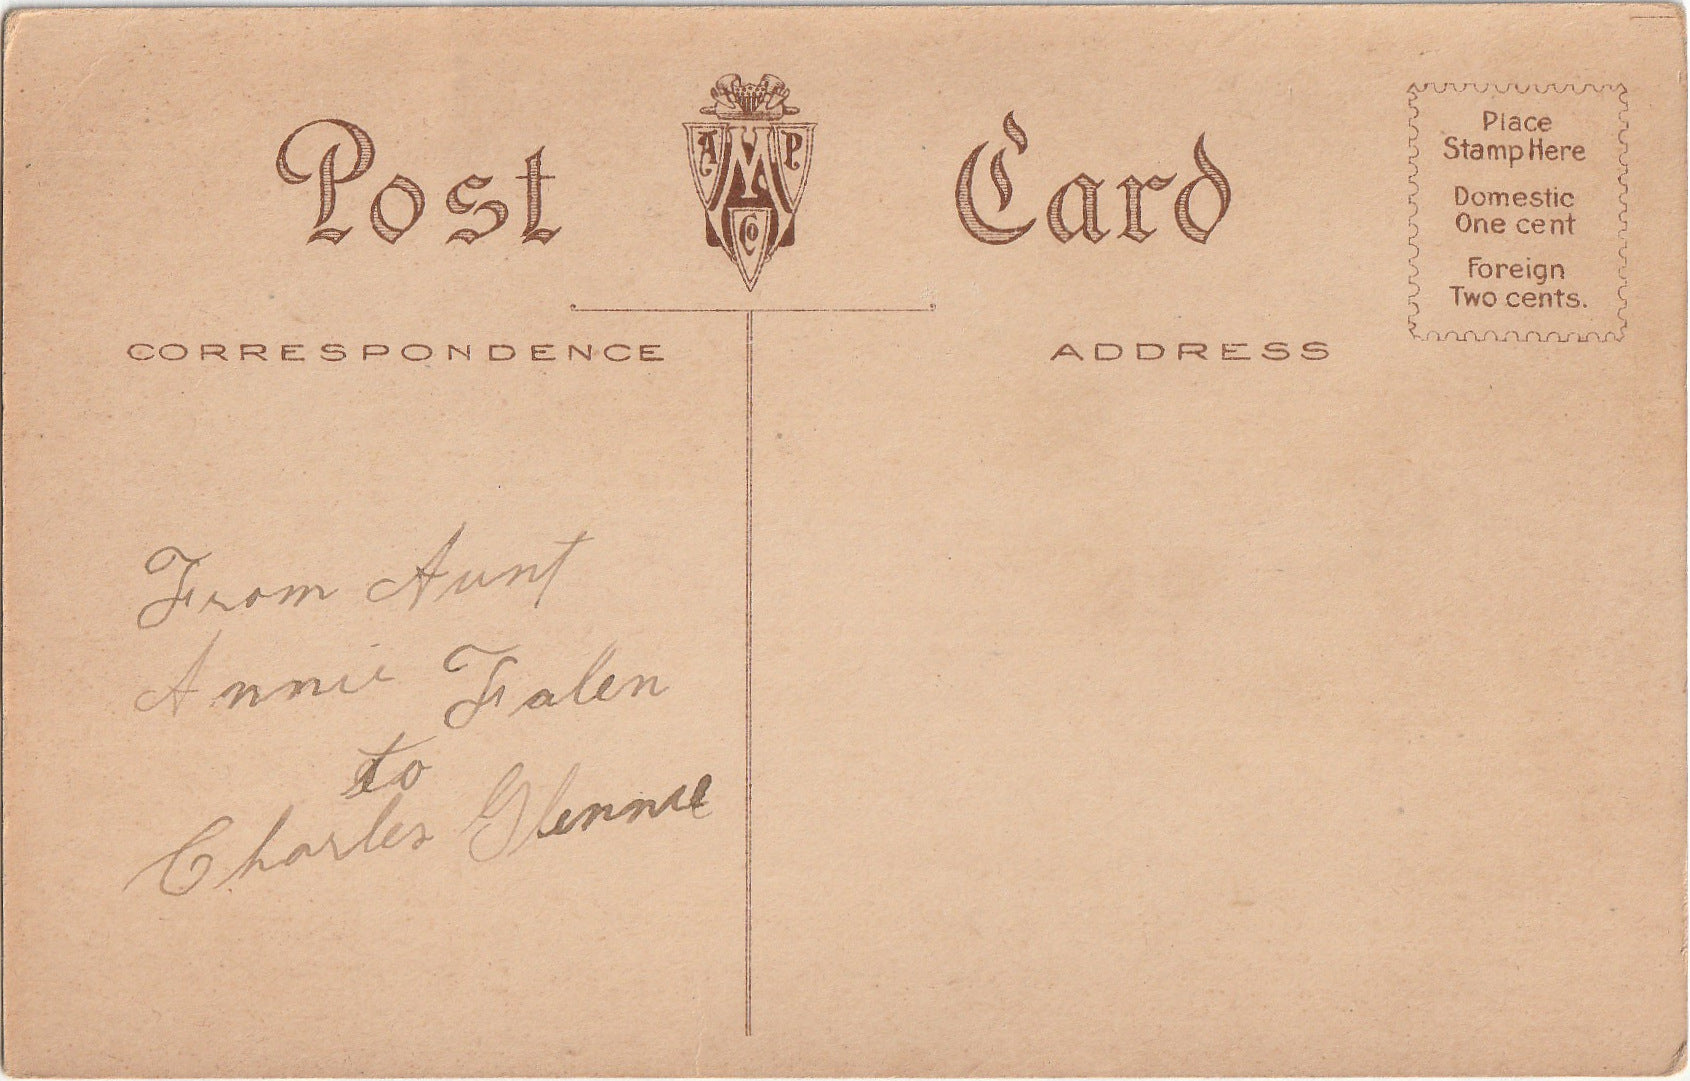 Post Card
A M P
Co
Place
Stamp Here
Domestic
One cent
Foreign
Two cents.
CORRESPONDENCE
ADDRESS
From Aunt
Annie Falen
to
Charles Glennie